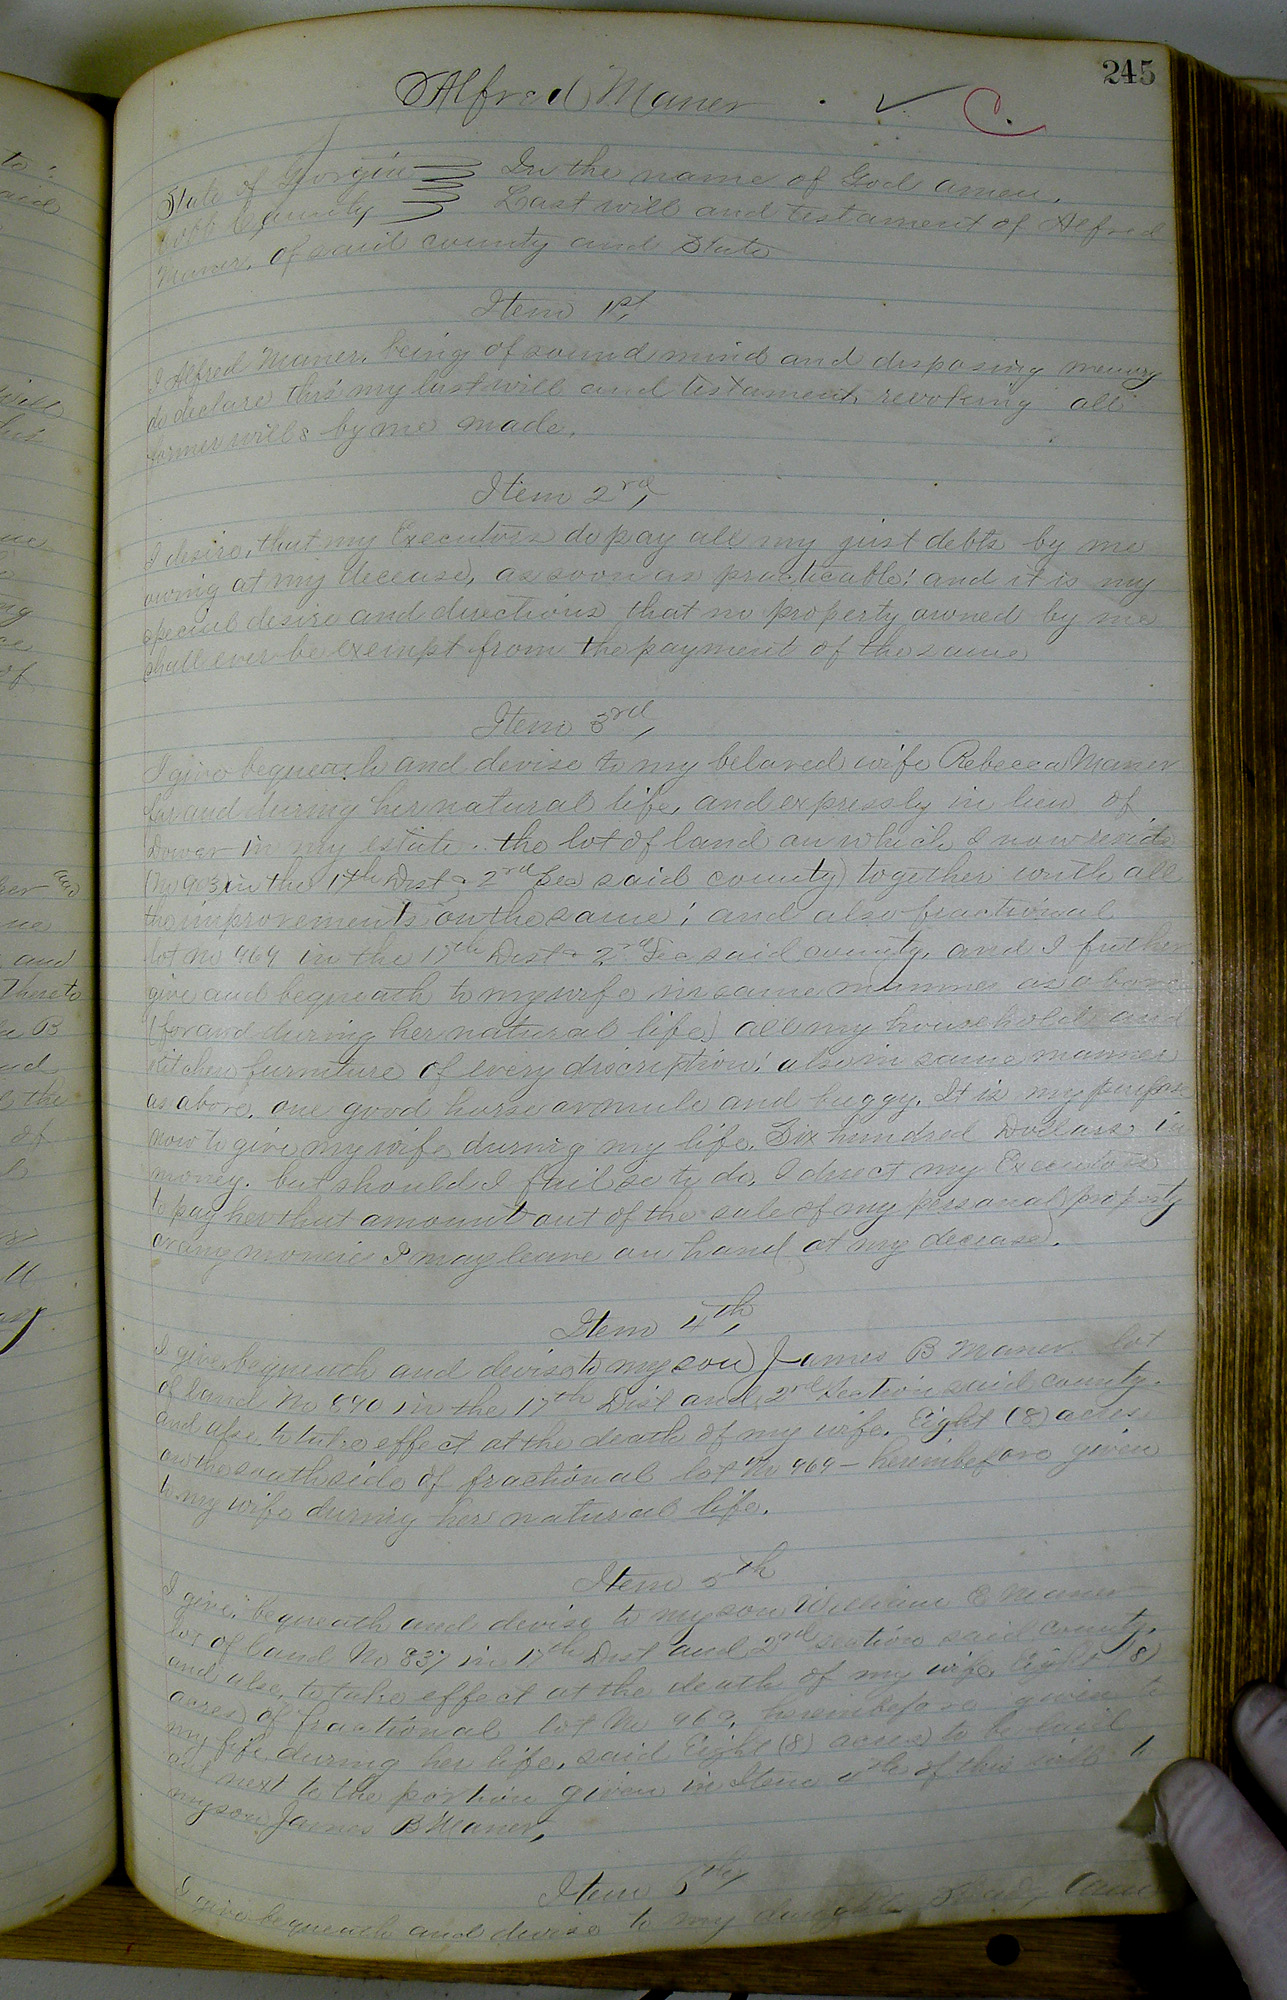 245
Alfred Maner
State of Georgia } In the name of God amen,
Cobb County } Last will and testament of Alfred
Maner, of said county and State
Item 1st,
I Alfred Maner, being of sound mind and disposing memory
do declare this my last will and testament, revoking all
former wills by me made.
Item 2nd,
I desire, that my Executors do pay all my just debts by me
owing at my decease, as soon as practicable; and it is my
special desire and directions that no property owned by me
shall ever be exempt from the payment of the same
Item 3rd,
I give bequeath and devise to my beloved wife Rebecca Maner
for and during her natural life, and expressly in lieu of
Dower in my estate. the lot of land on which I now reside
(No 903) in the 17th Dist & 2nd Sec said county) together with all
the improvements on the same; and also fractional
lot No 969 in the 17th Dist & 2nd Sec said county, and I futher
give and bequeath to my wife in same manner as above
(for and during her natural life) all my household and
kitchen furniture of every discription; also in same manner
as above, one good horse or mule and buggy. It is my purpose
now to give my wife during my life, Six hundred Dollars in
money. but should I fail so to do, I direct my Executors
to pay her that amount out of the sale of my personal property
or any monies I may leave on hand at my decease.
Item 4th,
I give, bequeath and devise to my son James B Maner lot
of land No 890 in the 17th Dist and 2nd Section said county.
and also, to take effect at the death of my wife, Eight (8) acres
on the south side of fractional lot No 969 - hereinbefore given
to my wife during her natural life.
Item 5th
I give, bequeath and devise to my son William E Maner
lot of land No 837 in 17th Dist and 2nd section said county,
and also, to take effect at the death of my wife, Eight (8)
acres of fractional lot No 969, hereinbefore given to
my wife during her life, said Eight (8) acres to be laid
out next to the portion given in Item 4th of this will to
my son James B Maner,
Item
I give bequeath and devise to my daughter